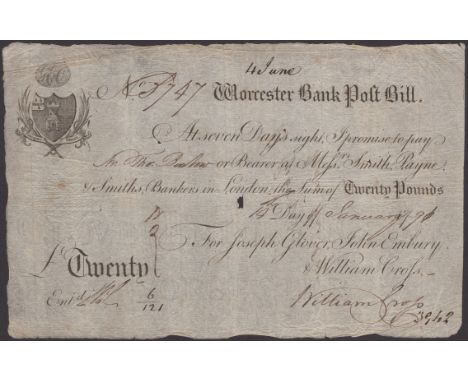 4 June
No 747 Worcester Bank Post Bill.
At seven Days sight, I promise to pay
Mr Thos or Bearer at Messrs. Smith, Payne
& Smiths, Bankers in London, the Sum of Twenty Pounds
Day of January 179
For Joseph Glover, John Embury
£ Twenty & William Cross.
Entd 6
121 William Cross
3942